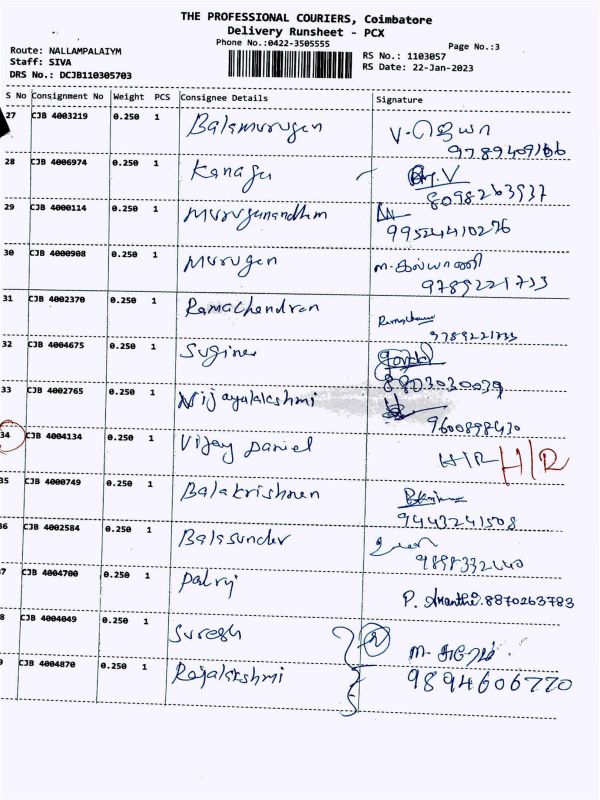 THE PROFESSIONAL COURIERS, Coimbatore
Delivery Runsheet - PCX
Phone No.:0422-3505555
Page No.:3
Route: NALLAMPALAIYM
Staff: SIVA
DRS No.: DCJB110305703
RS No.: 1103057
RS Date: 22-Jan-2023
S No Consignment No Weight PCS Consignee Details Signature
27 CJB 4003219 0.250 1 Balamurugan V. ஜெயா
9789409166
28 CJB 4006974 0.250 1 Kanagu
8098263937
29 CJB 4000114 0.250 1 Murugunandham
99524410276
30 CJB 4000908 0.250 1 Murugan ம. கல்யாணி
9789221733
31 CJB 4002370 0.250 1 Ramachandran
9789221733
32 CJB 4004675 0.250 1
8803030039
33 CJB 4002765 0.250 1 Vijayalakshmi
9600898430
34 CJB 4004134 0.250 1 Vijay Daniel H/R H/R
35 CJB 4000749 0.250 1 Balakrishnan
9443241508
36 CJB 4002584 0.250 1 Balasunder
9898332440
7 CJB 4004700 0.250 1 P. Ananthi. 8870263783
8 CJB 4004049 0.250 1 Suresh
9 CJB 4004870 0.250 1 Rajalakshmi 9894606770